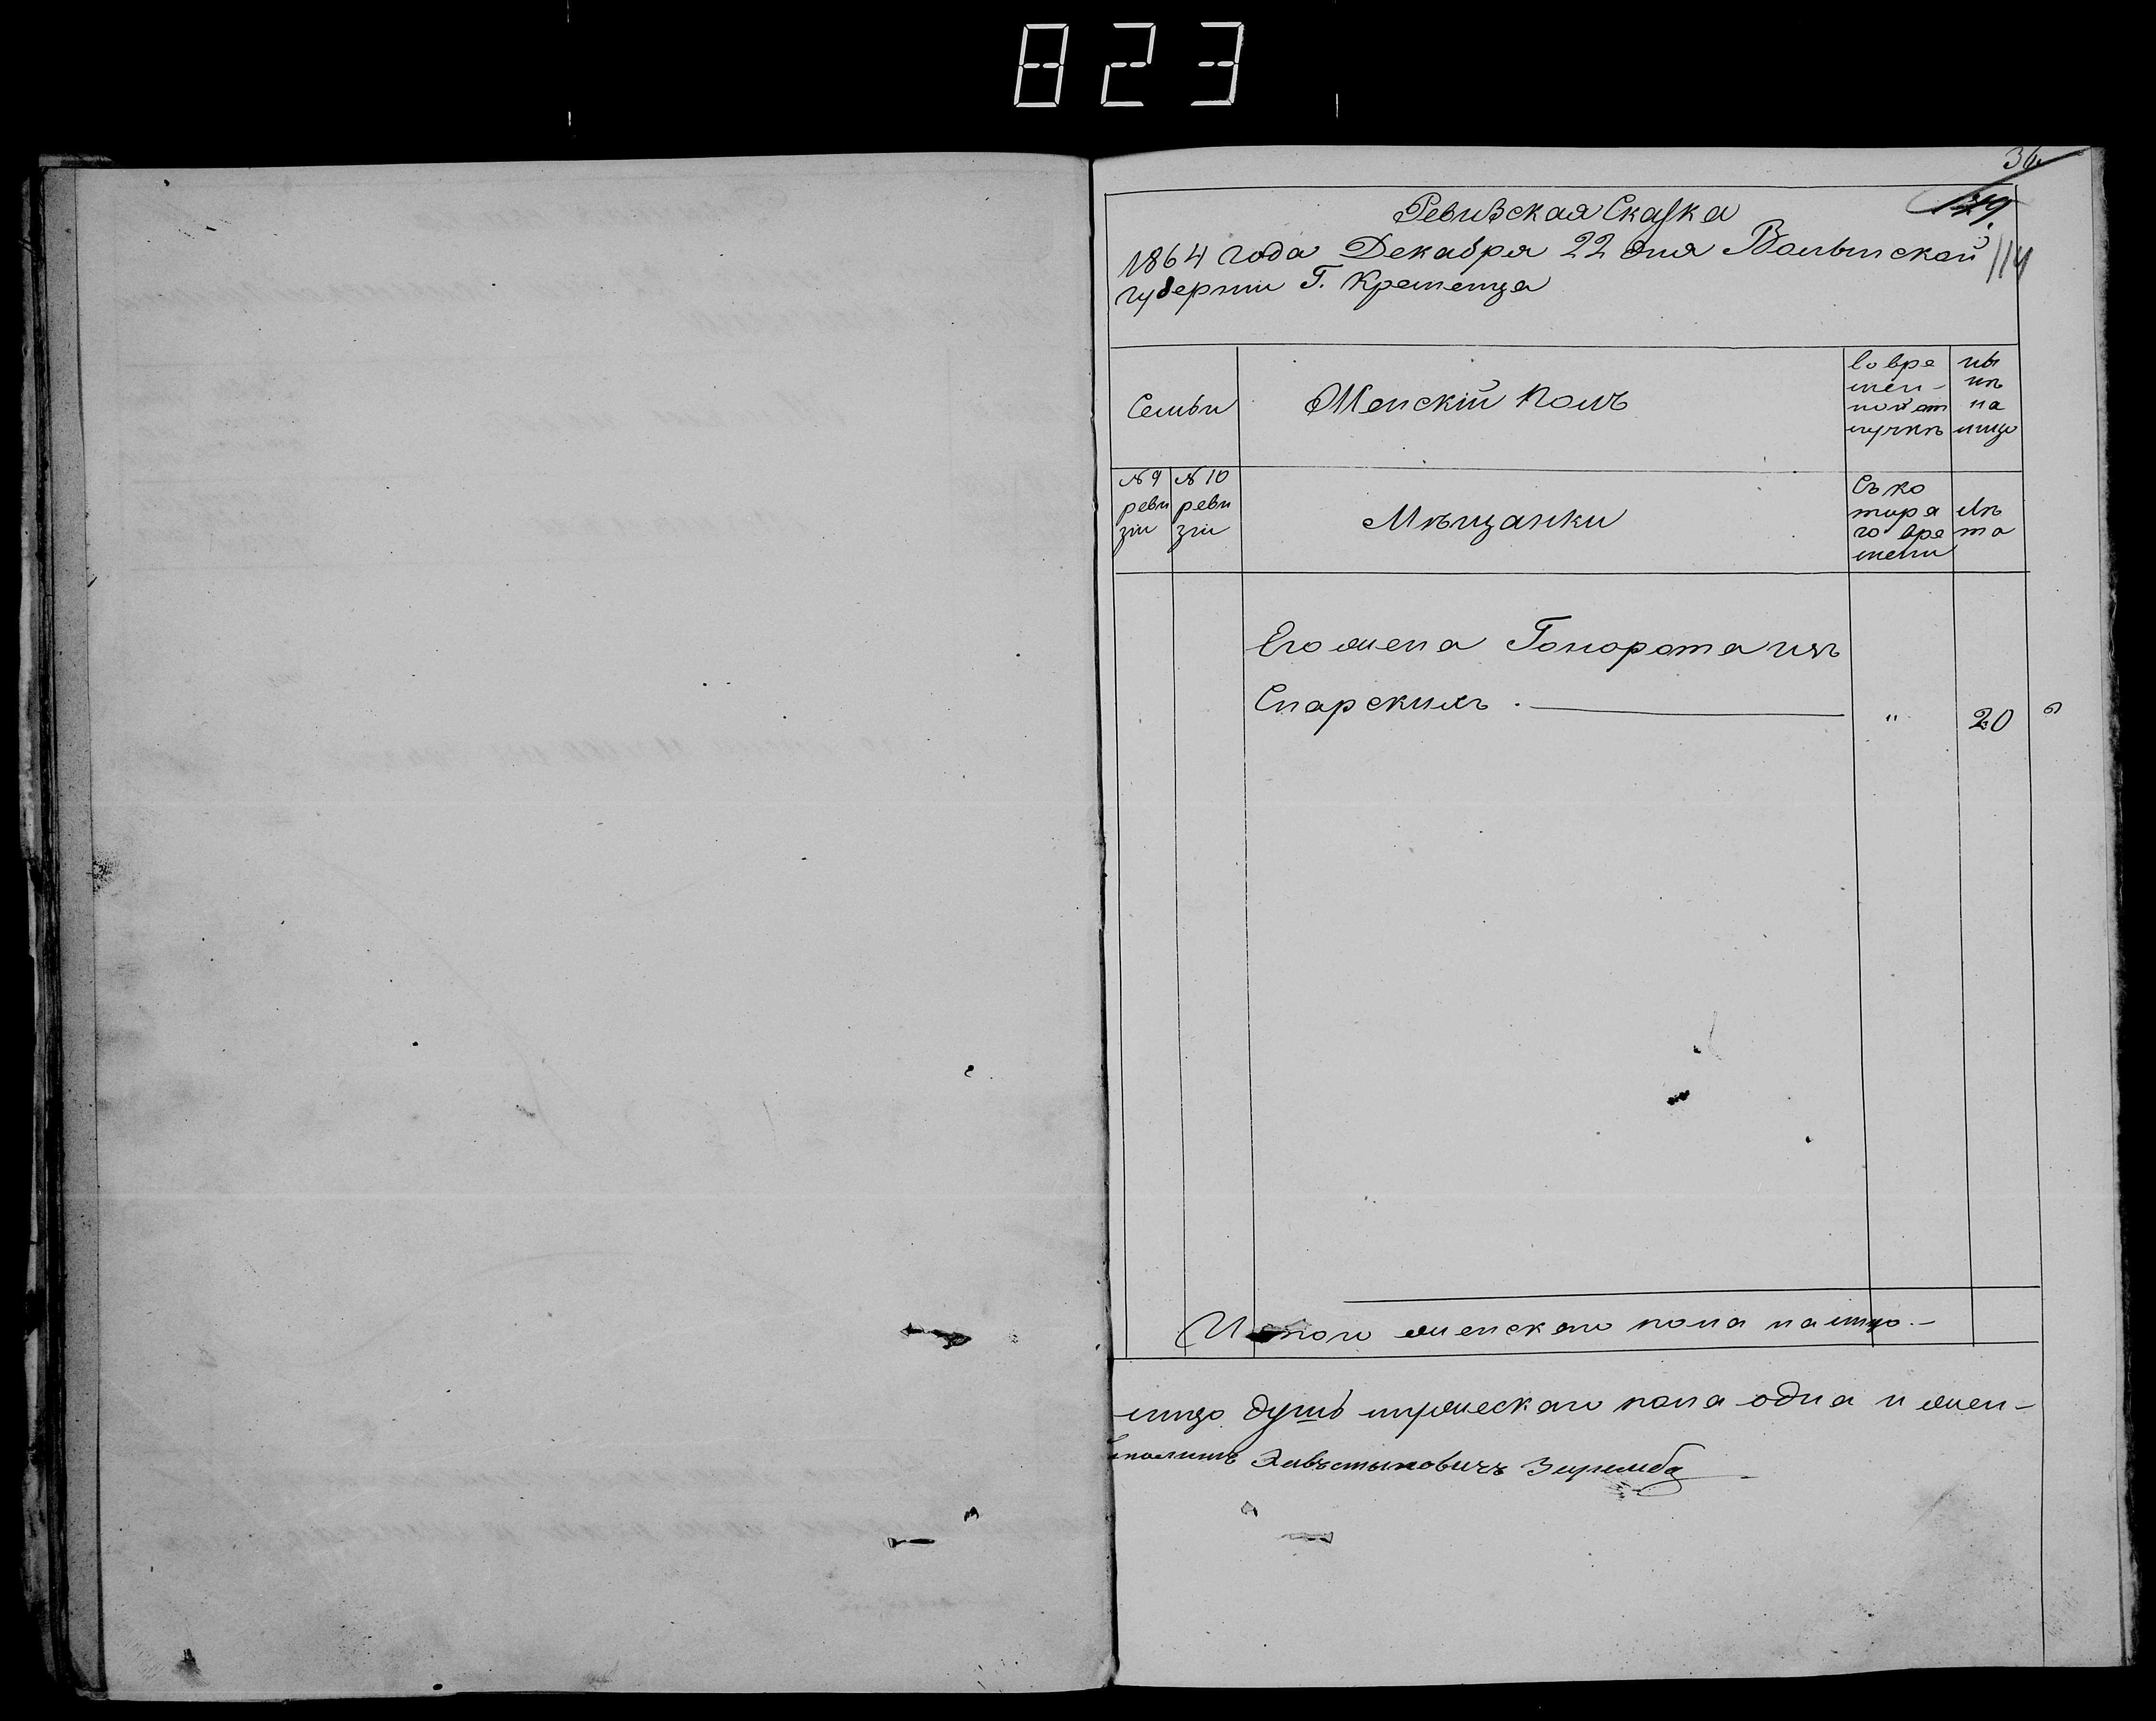 823
36
149.
Ревизская Сказка
1864 года Декабря 22 дня Волынской
114
губернии Г. Кременца
Семьи
Женскій полъ
Во вре
мен-
ной от
лучкѣ
Ны
нѣ
на
лицо
№ 9
реви
зіи
№ 10
реви
зіи
Мѣщанки
Съ ко
тора
го вре
мени
Лѣ
та
Его жена Гонората изъ
Снарскихъ.
"
20
Итого женскаго пола налицо.-
-лицо душъ мужескаго пола одна и жен-